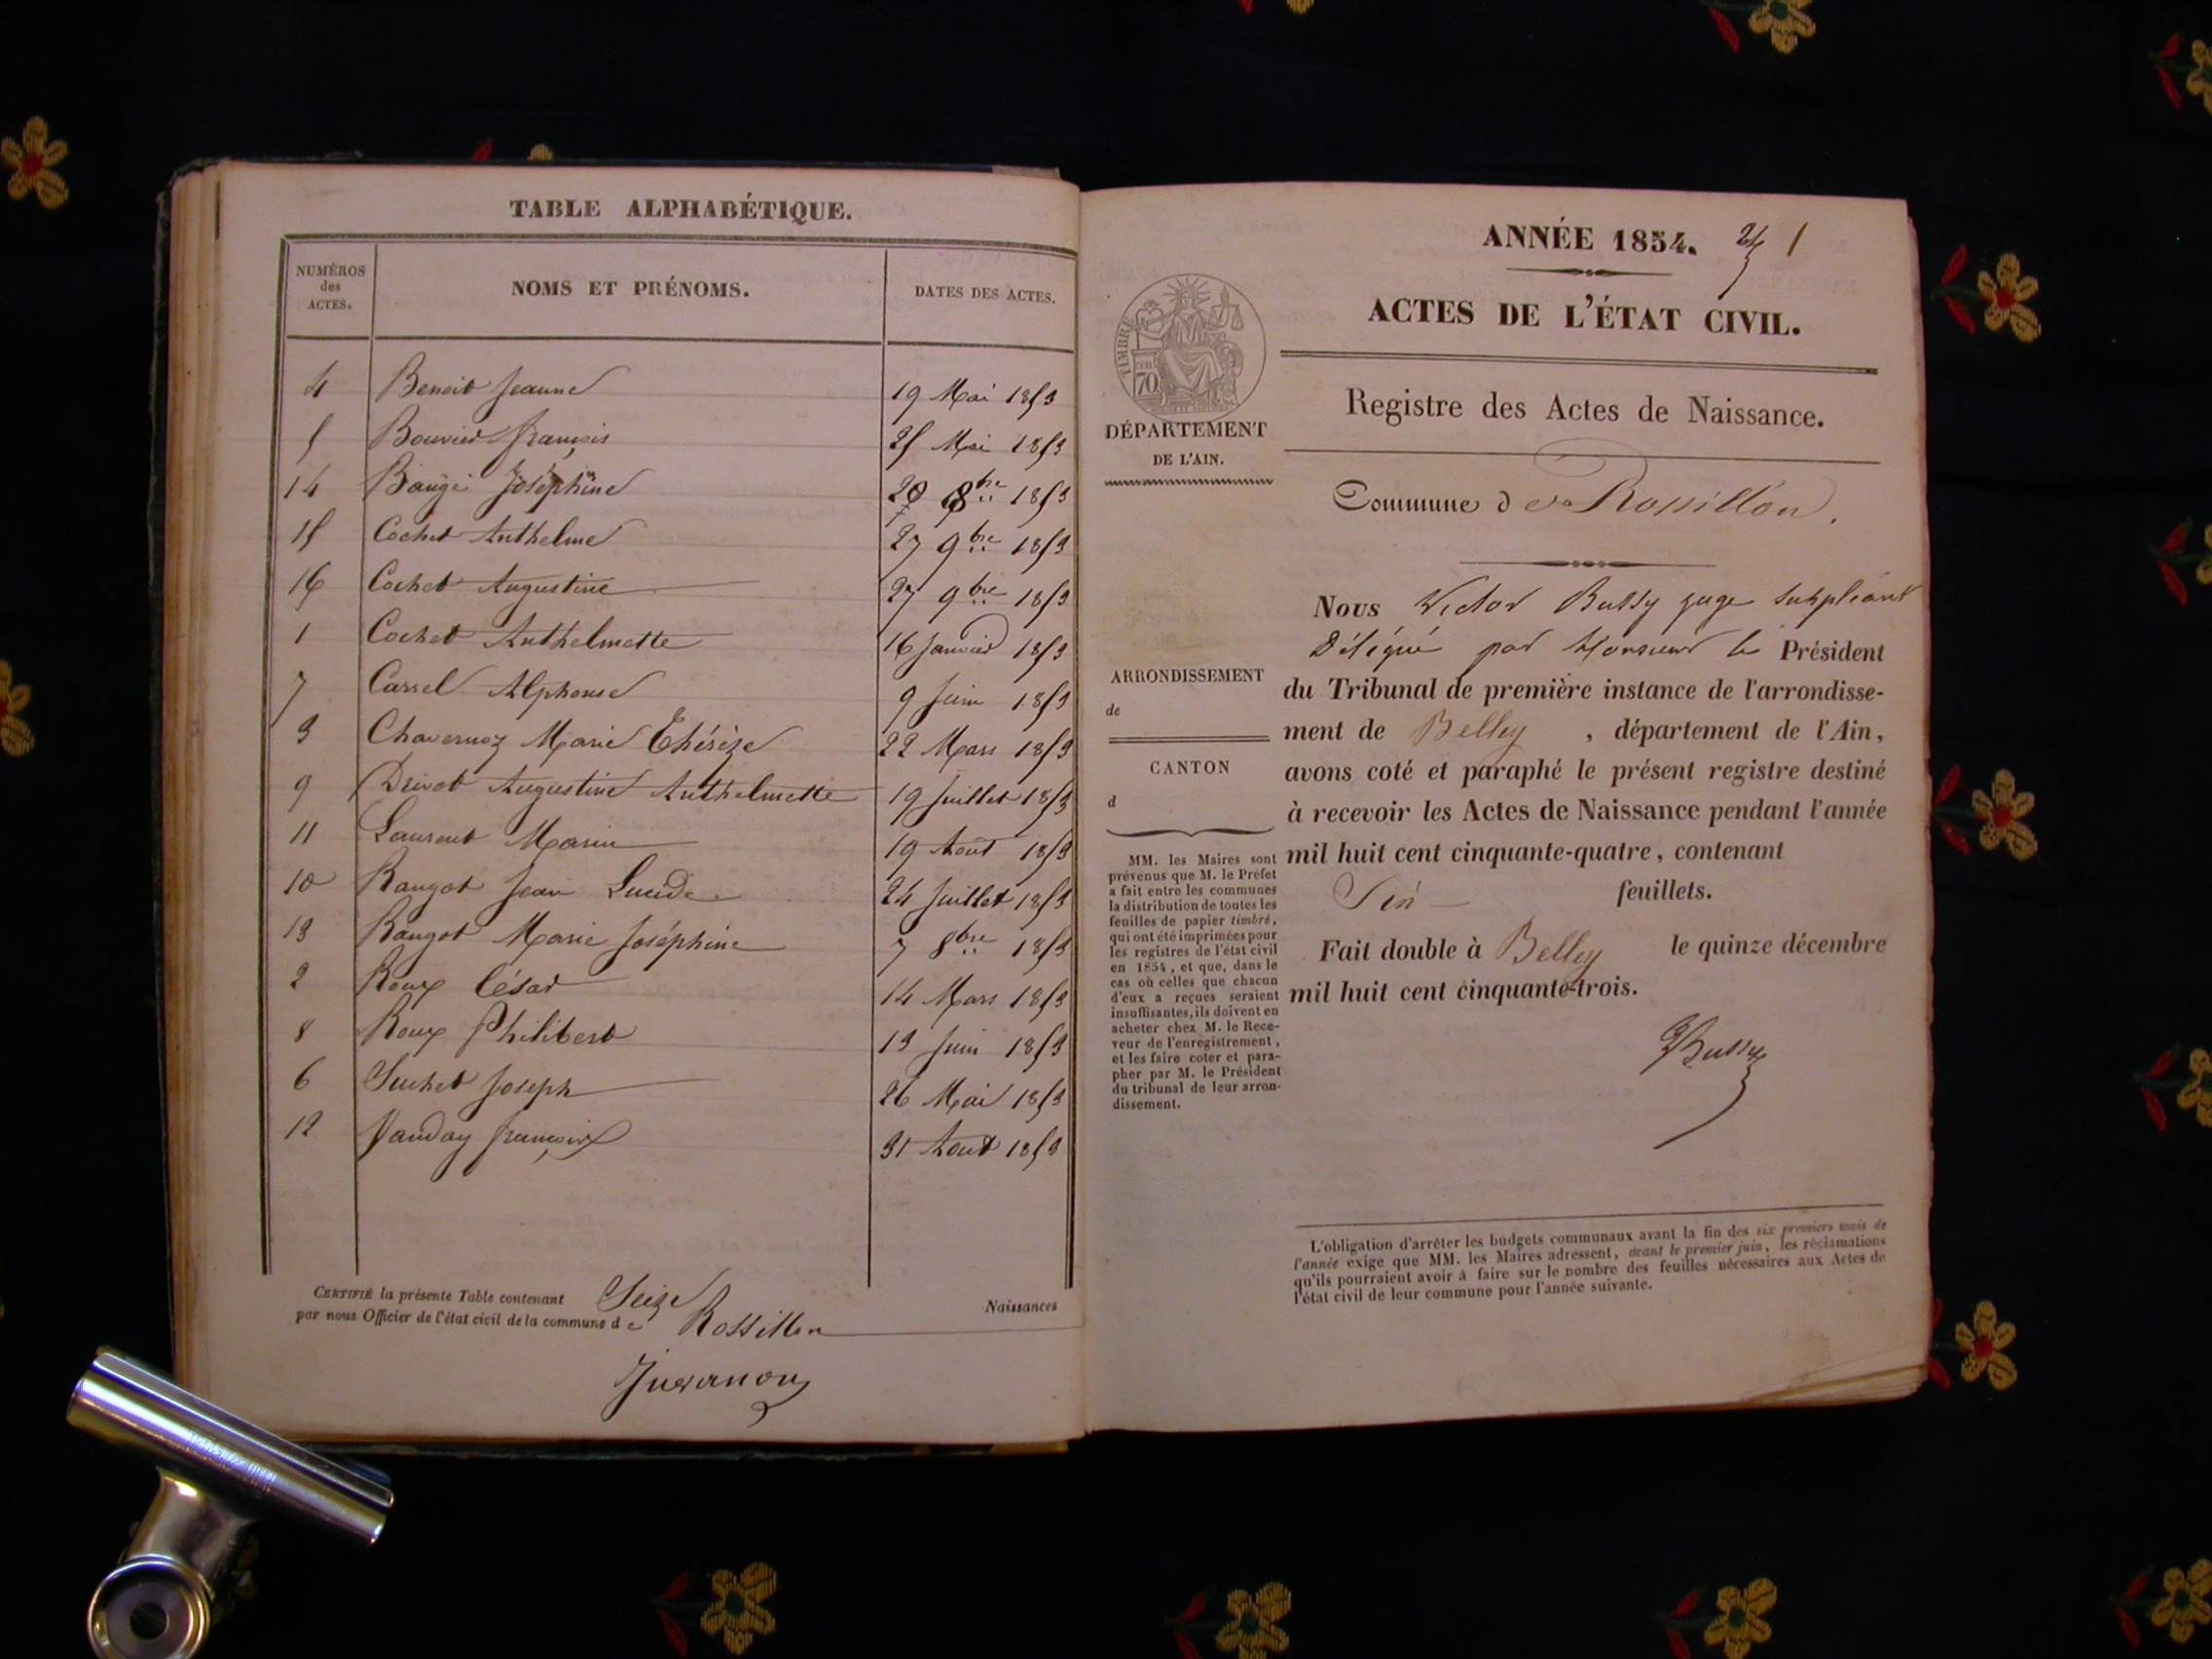 TABLE ALPHABÉTIQUE.
NUMÉROS
des
ACTES.
NOMS ET PRÉNOMS.
DATES DES ACTES.
4 Benoit Jeanne 19 Mai 1853
5 Bouvier françois 25 Mai 1853
14 Baugé Joséphine 20 8bre 1853
15 Cochet Anthelme 27 9bre 1853
16 Cochet Augustine 27 9bre 1853
1 Cochet Anthelmette 16 Janvier 1853
7 Carrel Alphonse 9 Juin 1853
3 Chavernoz Marie Thérèze 22 Mars 1853
9 Drivet Augustine Anthelmette 19 Juillet 1853
11 Laurent Marie 19 Aout 1853
10 Rangot Jean 24 Juillet 1853
13 Rangot Marie Joséphine 7 8bre 1853
2 Roux César 14 Mars 1853
8 Roux Philibert 13 Juin 1853
6 Suchet Joseph 26 Mai 1853
12 Vanday françois 31 Aout 1853
CERTIFIÉ la présente Table contenant Seize Naissances
par nous Officier de l'état civil de la commune de Rossillon
ANNÉE 1854. 1
ACTES DE L'ÉTAT CIVIL.
TIMBRE
70
DÉPARTEMENT
DE L'AIN.
ARRONDISSEMENT
de
CANTON
d
MM. les Maires sont
prévenus que M. le Préfet
a fait entre les communes
la distribution de toutes les
feuilles de papier timbré,
qui ont été imprimées pour
les registres de l'état civil
en 1854, et que, dans le
cas où celles que chacun
d'eux a reçues seraient
insuffisantes, ils doivent en
acheter chez M. le Rece-
veur de l'enregistrement,
et les faire coter et para-
pher par M. le Président
du tribunal de leur arron-
dissement.
Registre des Actes de Naissance.
Commune de Rossillon.
NOUS Victor Bussy juge suppléant
Délégué par Monsieur le Président
du Tribunal de première instance de l'arrondisse-
ment de Belley, département de l'Ain,
avons coté et paraphé le présent registre destiné
à recevoir les Actes de Naissance pendant l'année
mil huit cent cinquante-quatre, contenant
Six feuillets.
Fait double à Belley le quinze décembre
mil huit cent cinquante-trois.
Bussy
L'obligation d'arrêter les budgets communaux avant la fin des six premiers mois de
l'année exige que MM. les Maires adressent, avant le premier juin, les réclamations
qu'ils pourraient avoir à faire sur le nombre des feuilles nécessaires aux Actes de
l'état civil de leur commune pour l'année suivante.